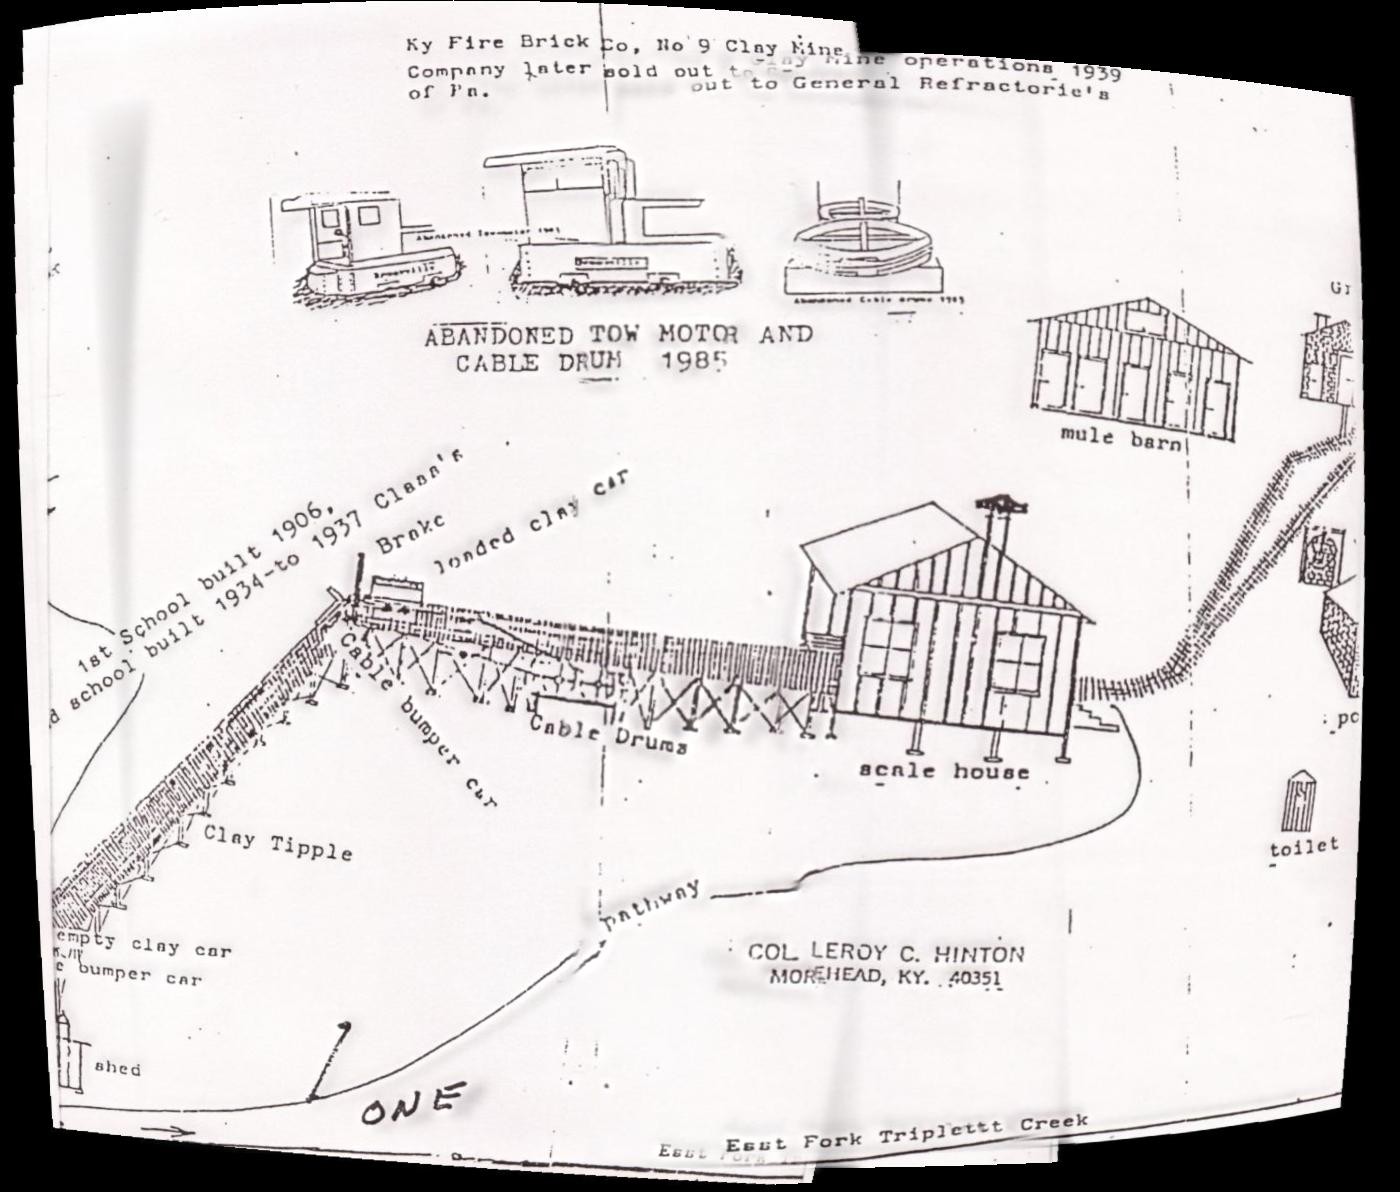 Ky Fire Brick Co, No 9 Clay Mine
Clay Mine operations 1939
Company later sold out to
out to General Refractorie's
of Pa.
Abandoned Towmotor 1985
Brownville
Brownville
Abandoned Cable drums 1985
ABANDONED TOW MOTOR AND
CABLE DRUM 1985
mule barn
1st School built 1906,
d school built 1934-to 1937 Class's
Brake
loaded clay car
Cable bumper car
Cable Drums
scale house
Clay Tipple
toilet
pathway
empty clay car
e bumper car
COL LEROY C. HINTON
MOREHEAD, KY. 40351
shed
ONE
East Fork Triplettt Creek
East Fork